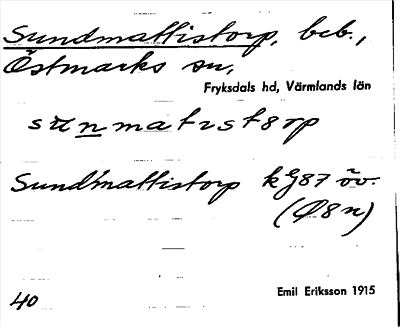 Sundmattistorp, beb.,
Östmarks sn,
Fryksdals hd, Värmlands län
Sundmattistorp kG87 öv.
Emil Eriksson 1915
40